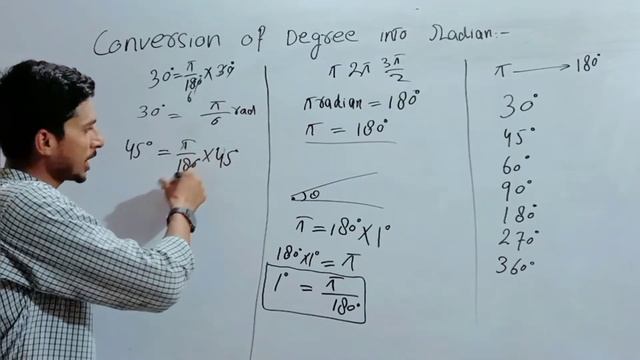 Conversion of Degree into Radian:-
30° = π/180 × 30°
6
30° = π/6 rad
45° = π/180 × 45
π 2π 3π/2
π radian = 180°
π = 180°
θ
π = 180° × 1°
180° × 1° = π
1° = π/180°
π → 180°
30°
45°
60°
90°
180°
270°
360°